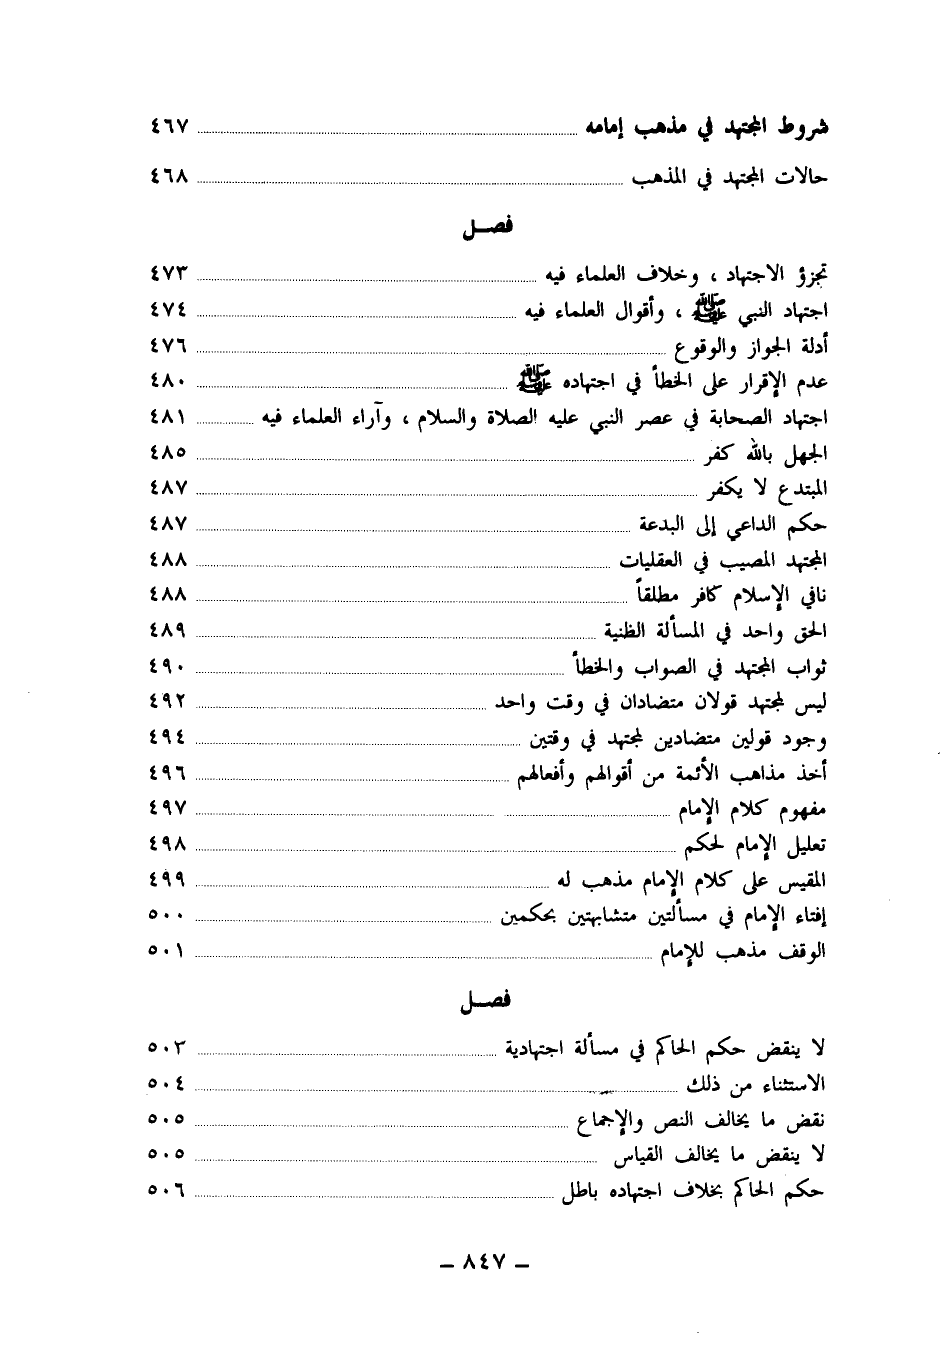 شروط المجتهد في مذهب إمامه ٤٦٧
حالات المجتهد في المذهب ٤٦٨
فصــل
تجزؤ الاجتهاد ، وخلاف العلماء فيه ٤٧٣
اجتهاد النبي ﷺ ، وأقوال العلماء فيه ٤٧٤
أدلة الجواز والوقوع ٤٧٦
عدم الإقرار على الخطأ في اجتهاده ﷺ ٤٨٠
اجتهاد الصحابة في عصر النبي عليه الصلاة والسلام ، وآراء العلماء فيه ٤٨١
الجهل بالله كفر ٤٨٥
المبتدع لا يكفر ٤٨٧
حكم الداعي إلى البدعة ٤٨٧
المجتهد المصيب في العقليات ٤٨٨
نافي الإسلام كافر مطلقاً ٤٨٨
الحق واحد في المسألة الظنية ٤٨٩
ثواب المجتهد في الصواب والخطأ ٤٩٠
ليس لمجتهد قولان متضادان في وقت واحد ٤٩٢
وجود قولين متضادين لمجتهد في وقتين ٤٩٤
أخذ مذاهب الأئمة من أقوالهم وأفعالهم ٤٩٦
مفهوم كلام الإمام ٤٩٧
تعليل الإمام لحكم ٤٩٨
المقيس على كلام الإمام مذهب له ٤٩٩
إفتاء الإمام في مسألتين متشابهتين بحكمين ٥٠٠
الوقف مذهب للإمام ٥٠١
فصــل
لا ينقض حكم الحاكم في مسألة اجتهادية ٥٠٣
الاستثناء من ذلك ٥٠٤
نقض ما يخالف النص والإجماع ٥٠٥
لا ينقض ما يخالف القياس ٥٠٥
حكم الحاكم بخلاف اجتهاده باطل ٥٠٦
– ٨٤٧ –